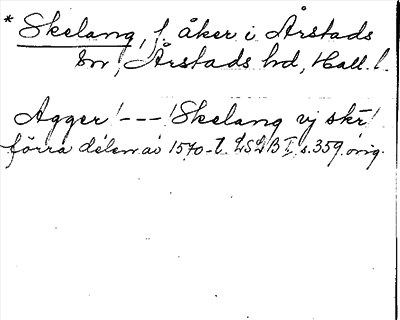 * Skelang, f. åker i Årstads
sn, Årstads hd, Hall. l.
Agger! --- ! Skelang vj skr!
förra delen av 1570-t. LSLB I s. 359 orig.